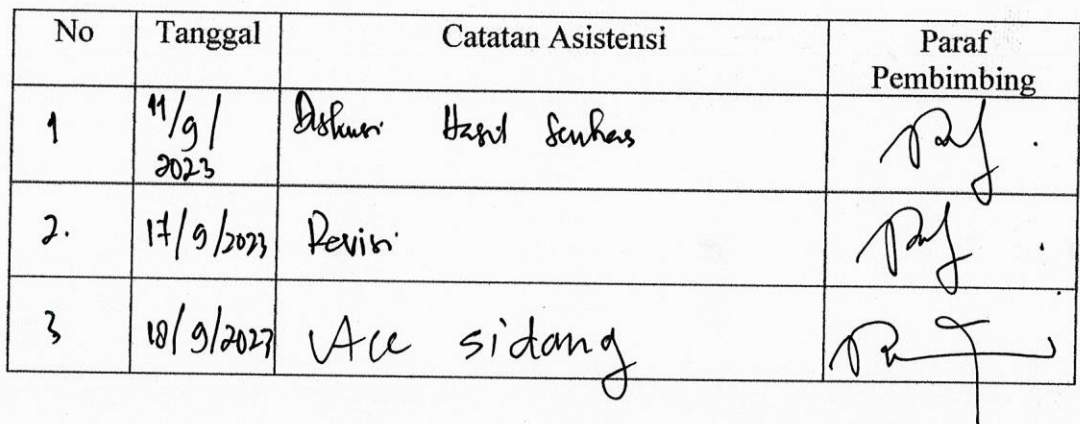 No Tanggal Catatan Asistensi Paraf
Pembimbing
1 11/9/ Diskusi Hasil Semhas
2023
2. 17/9/2023 Revisi
3 18/9/2023 Acc sidang